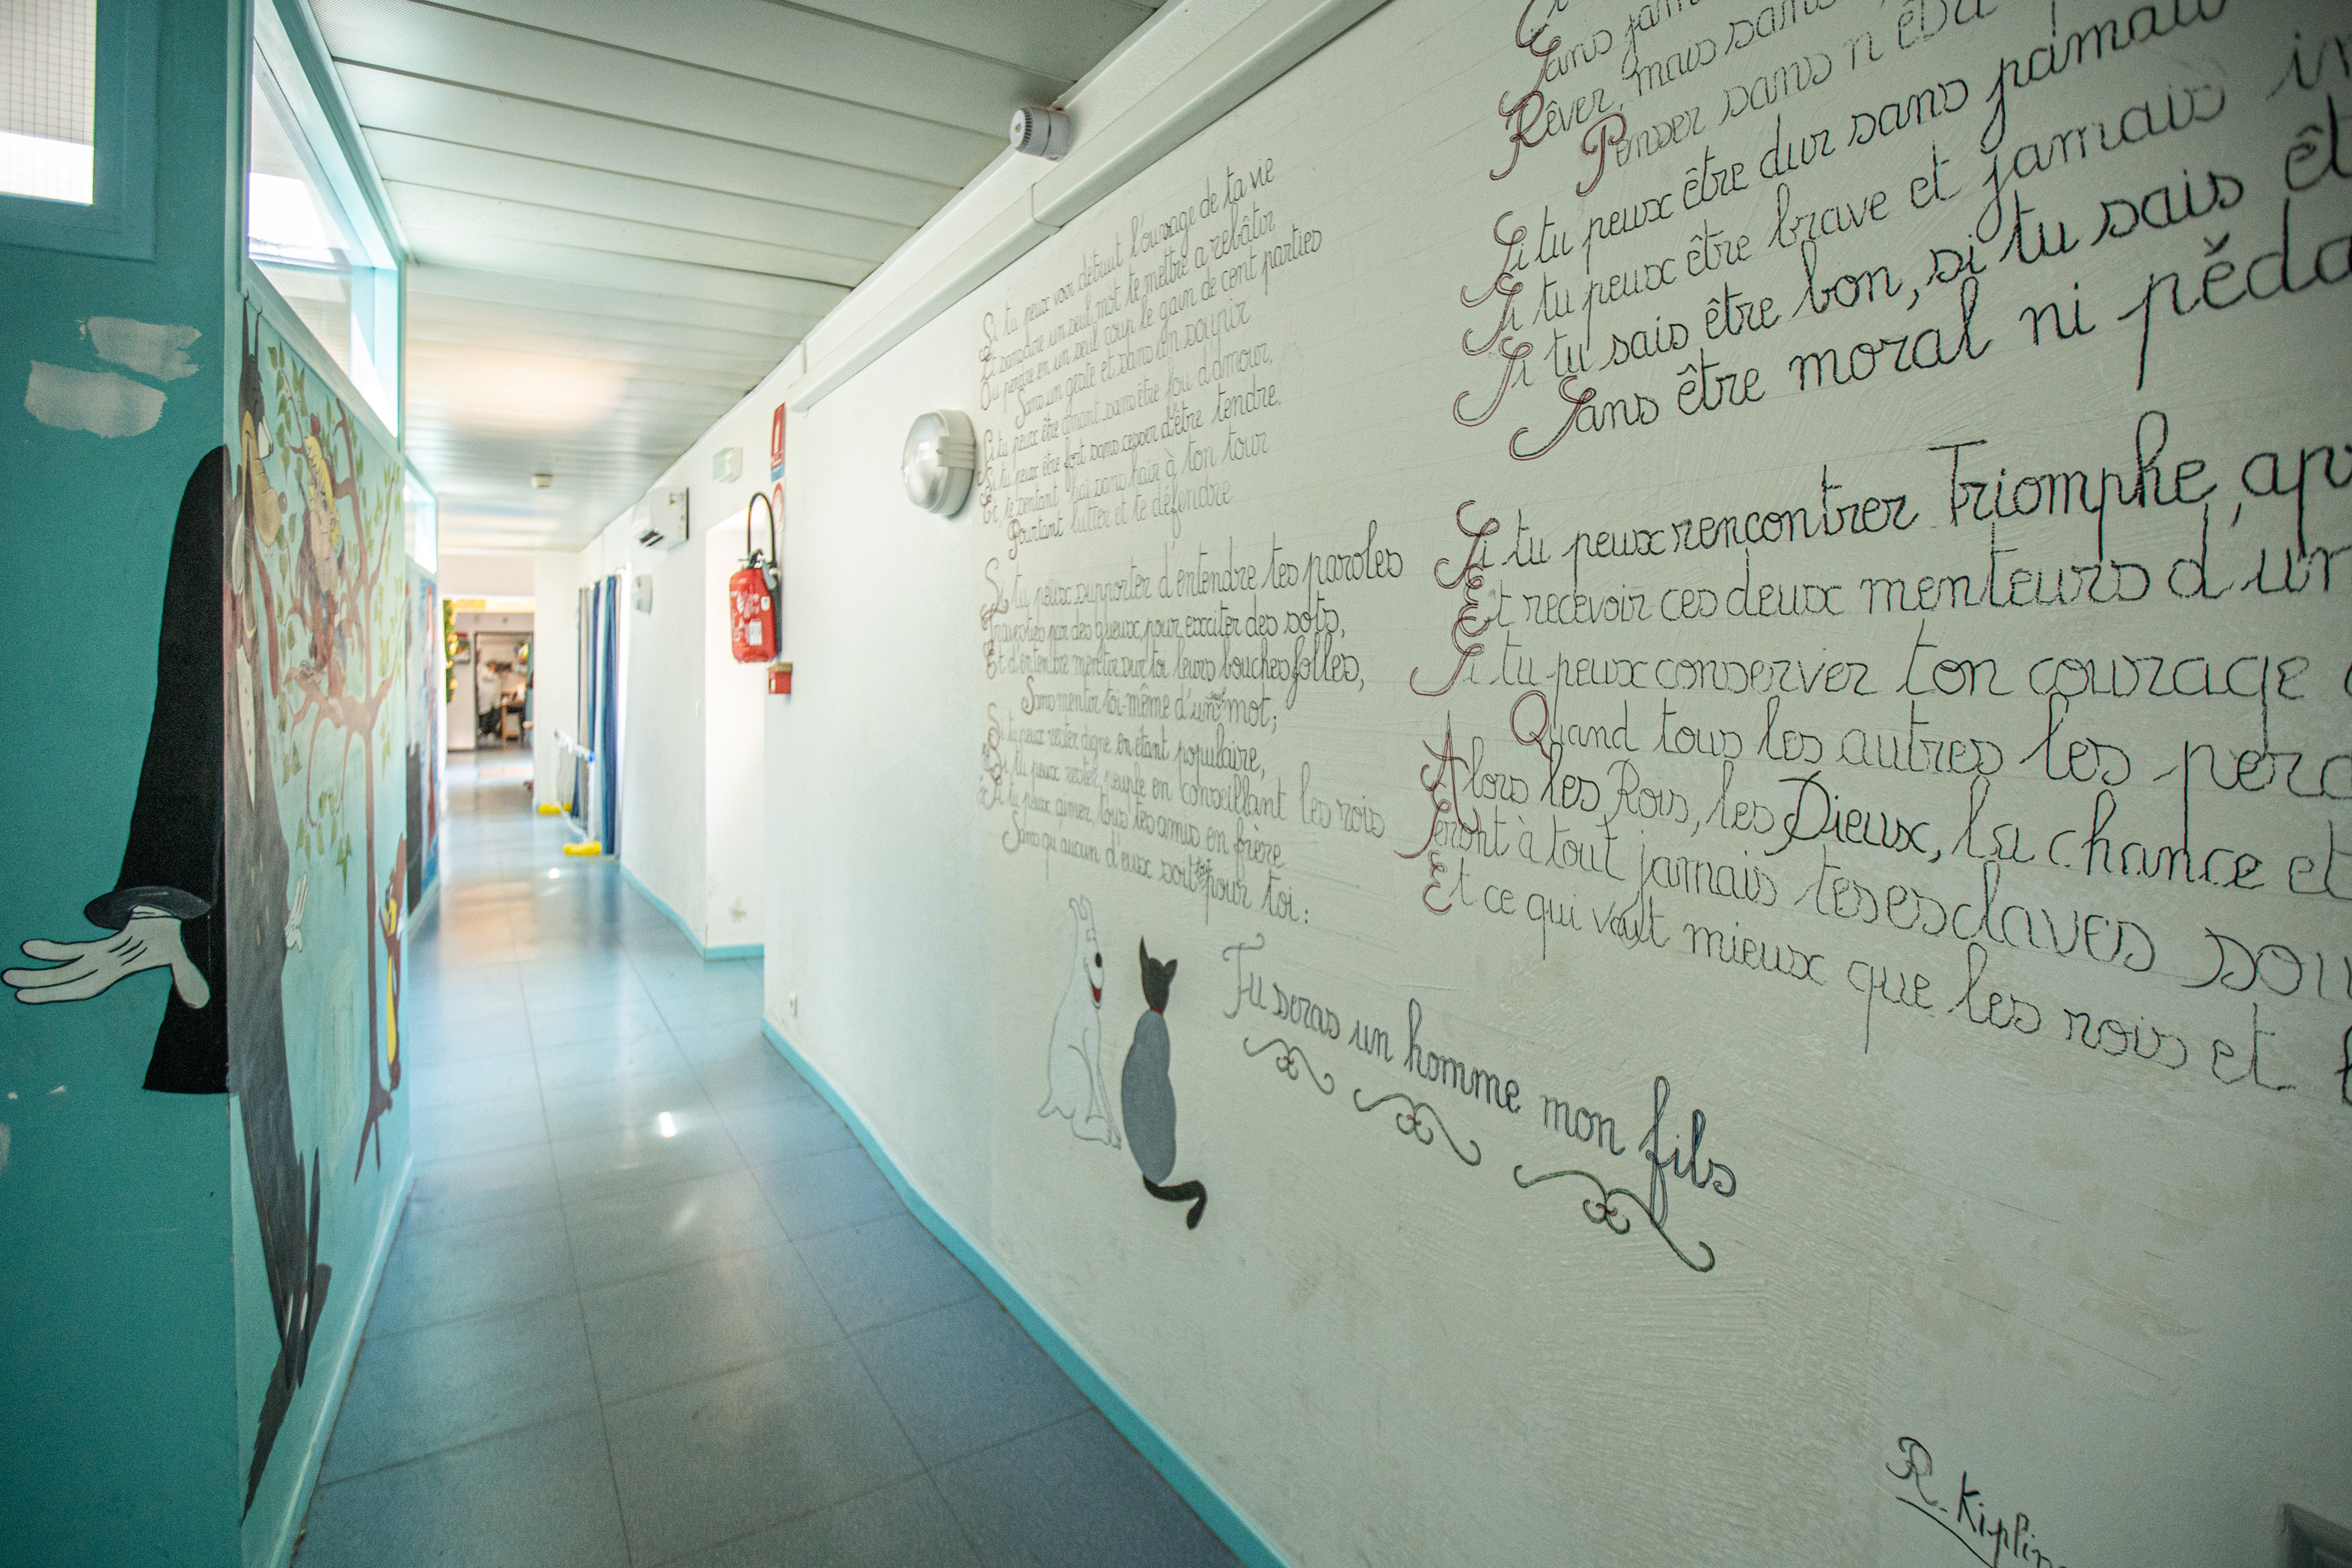 Si tu peux voir détruit l'ouvrage de ta vie
Et sans dire un seul mot te mettre a rebâtir
Ou perdre en un seul coup le gain de cent parties
Sans un geste et sans un soupir
Si tu peux être amant sans être fou d'amour,
Si tu peux être fort sans cesser d'être tendre,
Et, te sentant haï sans haïr à ton tour
Pourtant lutter et te défendre
Si tu peux supporter d'entendre tes paroles
Travesties par des gueux pour exciter des sots,
Et d'entendre mentir sur toi leurs bouches folles,
Sans mentir toi-même d'un mot;
Si tu peux rester digne en étant populaire,
Si tu peux rester peuple en conseillant les rois
Si tu peux aimer tous tes amis en frère
Sans qu'aucun d'eux soit tout pour toi:
Sans jam
Rêver, mais sans
Penser sans n'êt
Si tu peux être dur sans jamais
Si tu peux être brave et jamais
Si tu sais être bon, si tu sais êt
Sans être moral ni péda
Si tu peux rencontrer Triomphe, ap
Et recevoir ces deux menteurs d'un
Si tu peux conserver ton courage
Quand tous les autres les perd
Alors les Rois, les Dieux, la chance et
Seront à tout jamais tes esclaves sou
Et ce qui vaut mieux que les rois et
Tu seras un homme mon fils
R. Kiplin